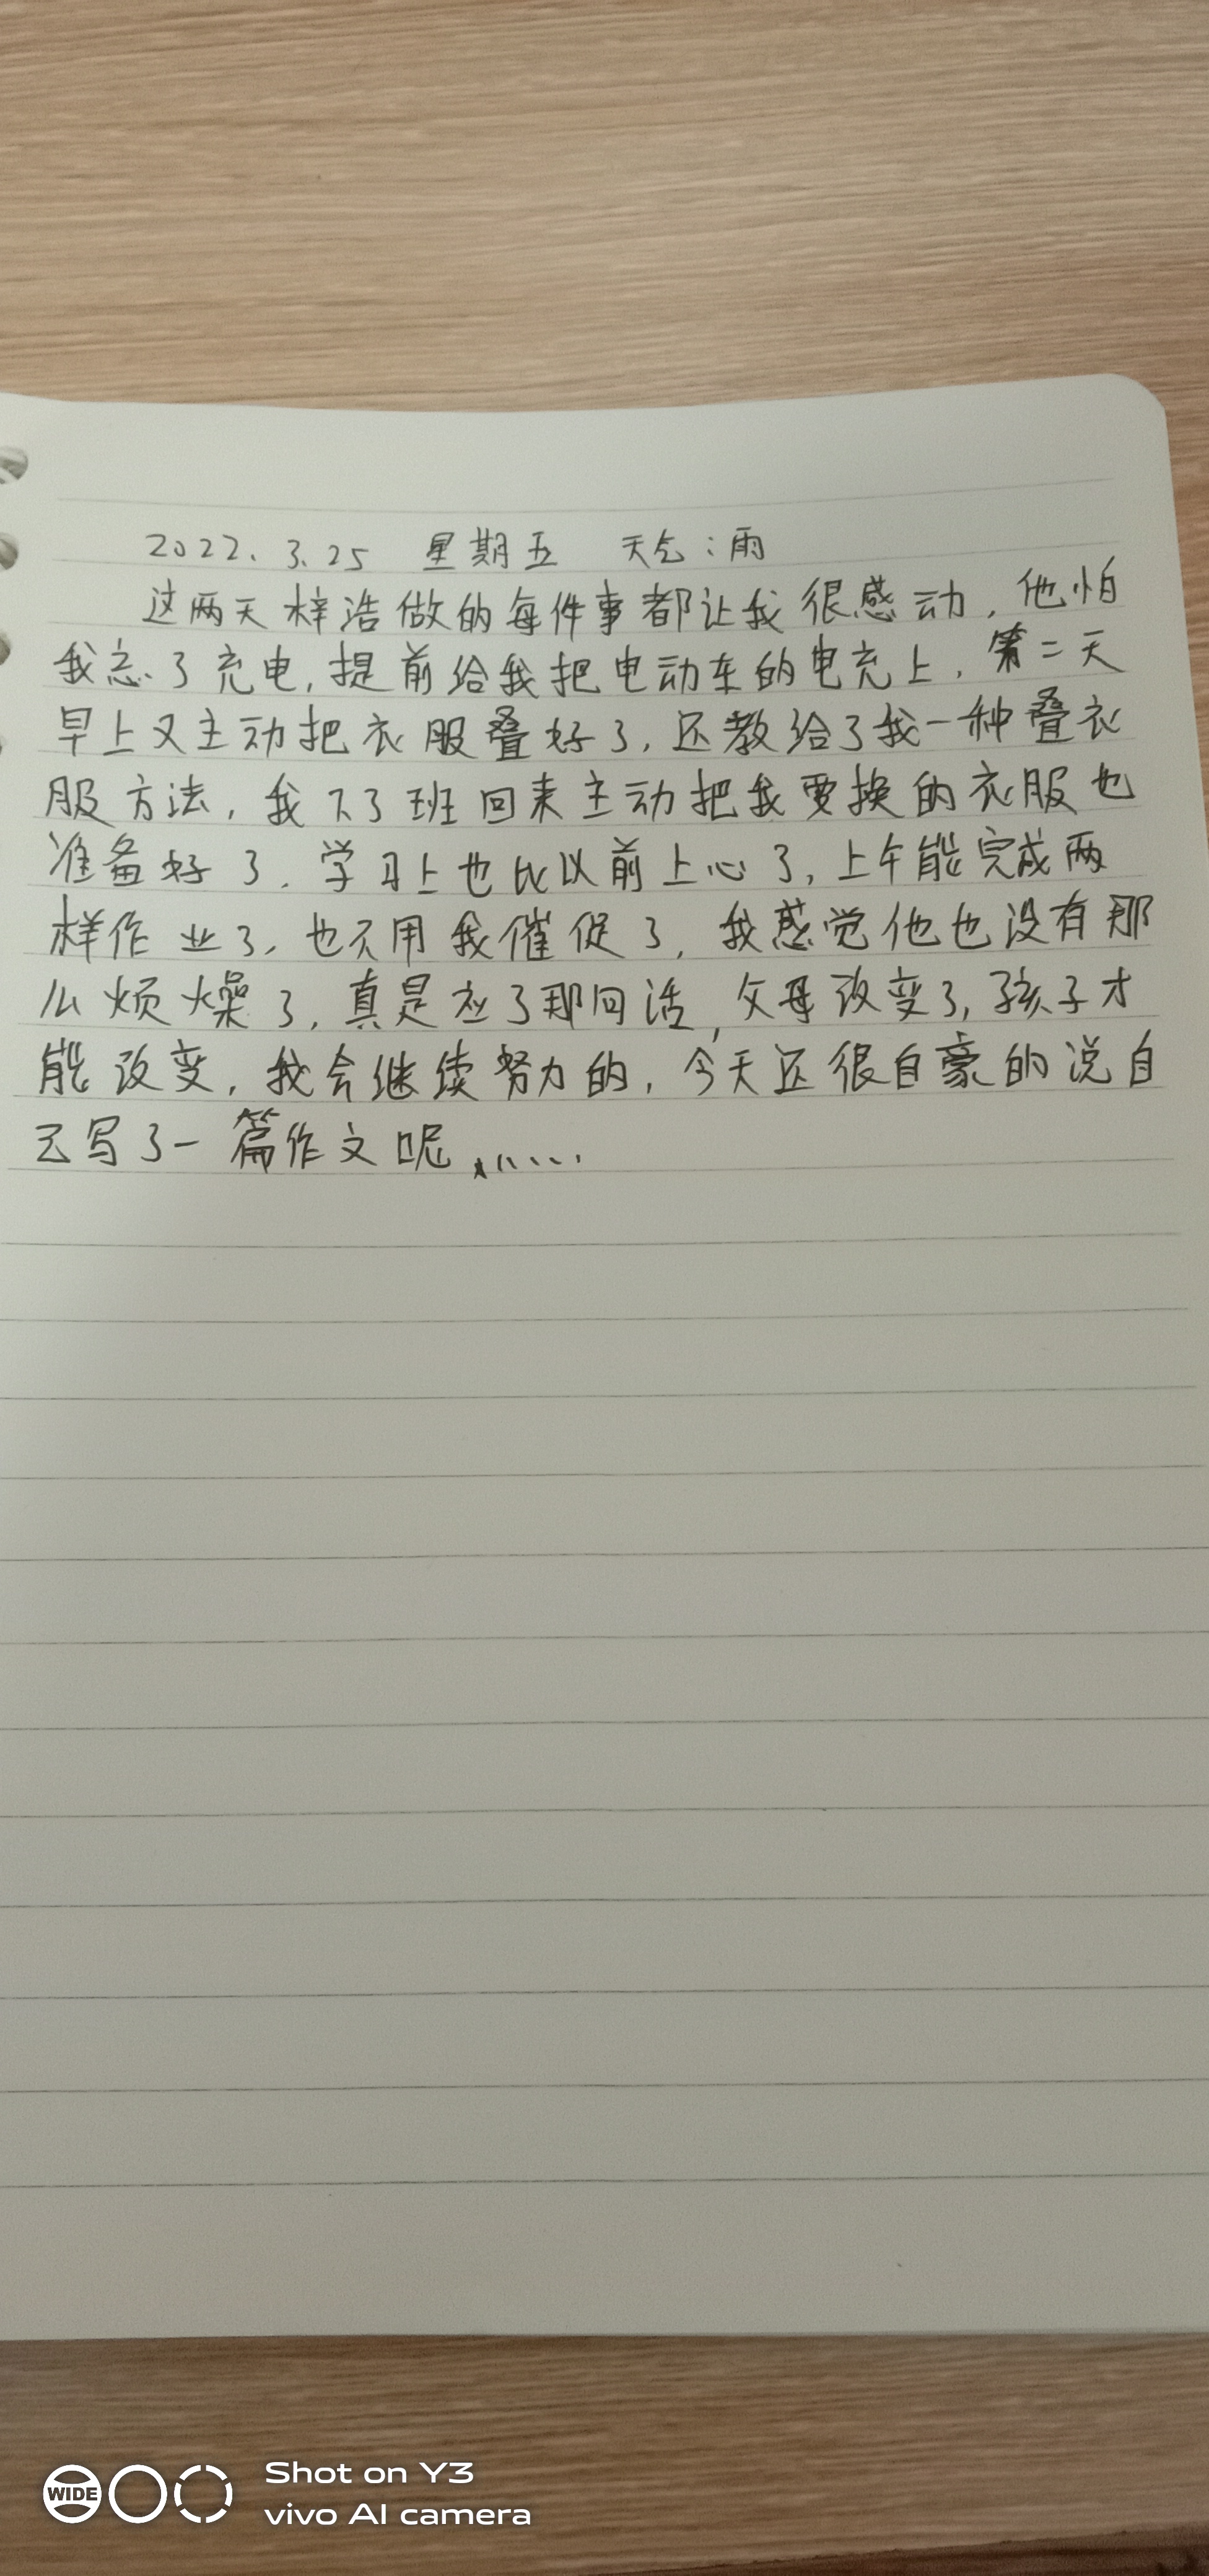 2022.3.25 星期五 天气:雨
这两天梓浩做的每件事都让我很感动,他怕
我忘了充电,提前给我把电动车的电充上,第二天
早上又主动把衣服叠好了,还教给了我一种叠衣
服方法,我下了班回来主动把我要换的衣服也
准备好了,学习上也比以前上心了,上午能完成两
样作业了,也不用我催促了,我感觉他也没有那
么烦燥了,真是应了那句话,父母改变了,孩子才
能改变,我会继续努力的,今天还很自豪的说自
己写了一篇作文呢......
WIDE
Shot on Y3
vivo AI camera